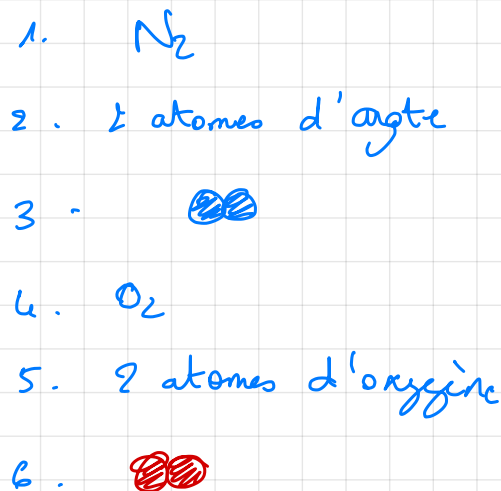 1. N₂
2. 2 atomes d'azote
3.
4. O₂
5. 2 atomes d'oxygène
6.